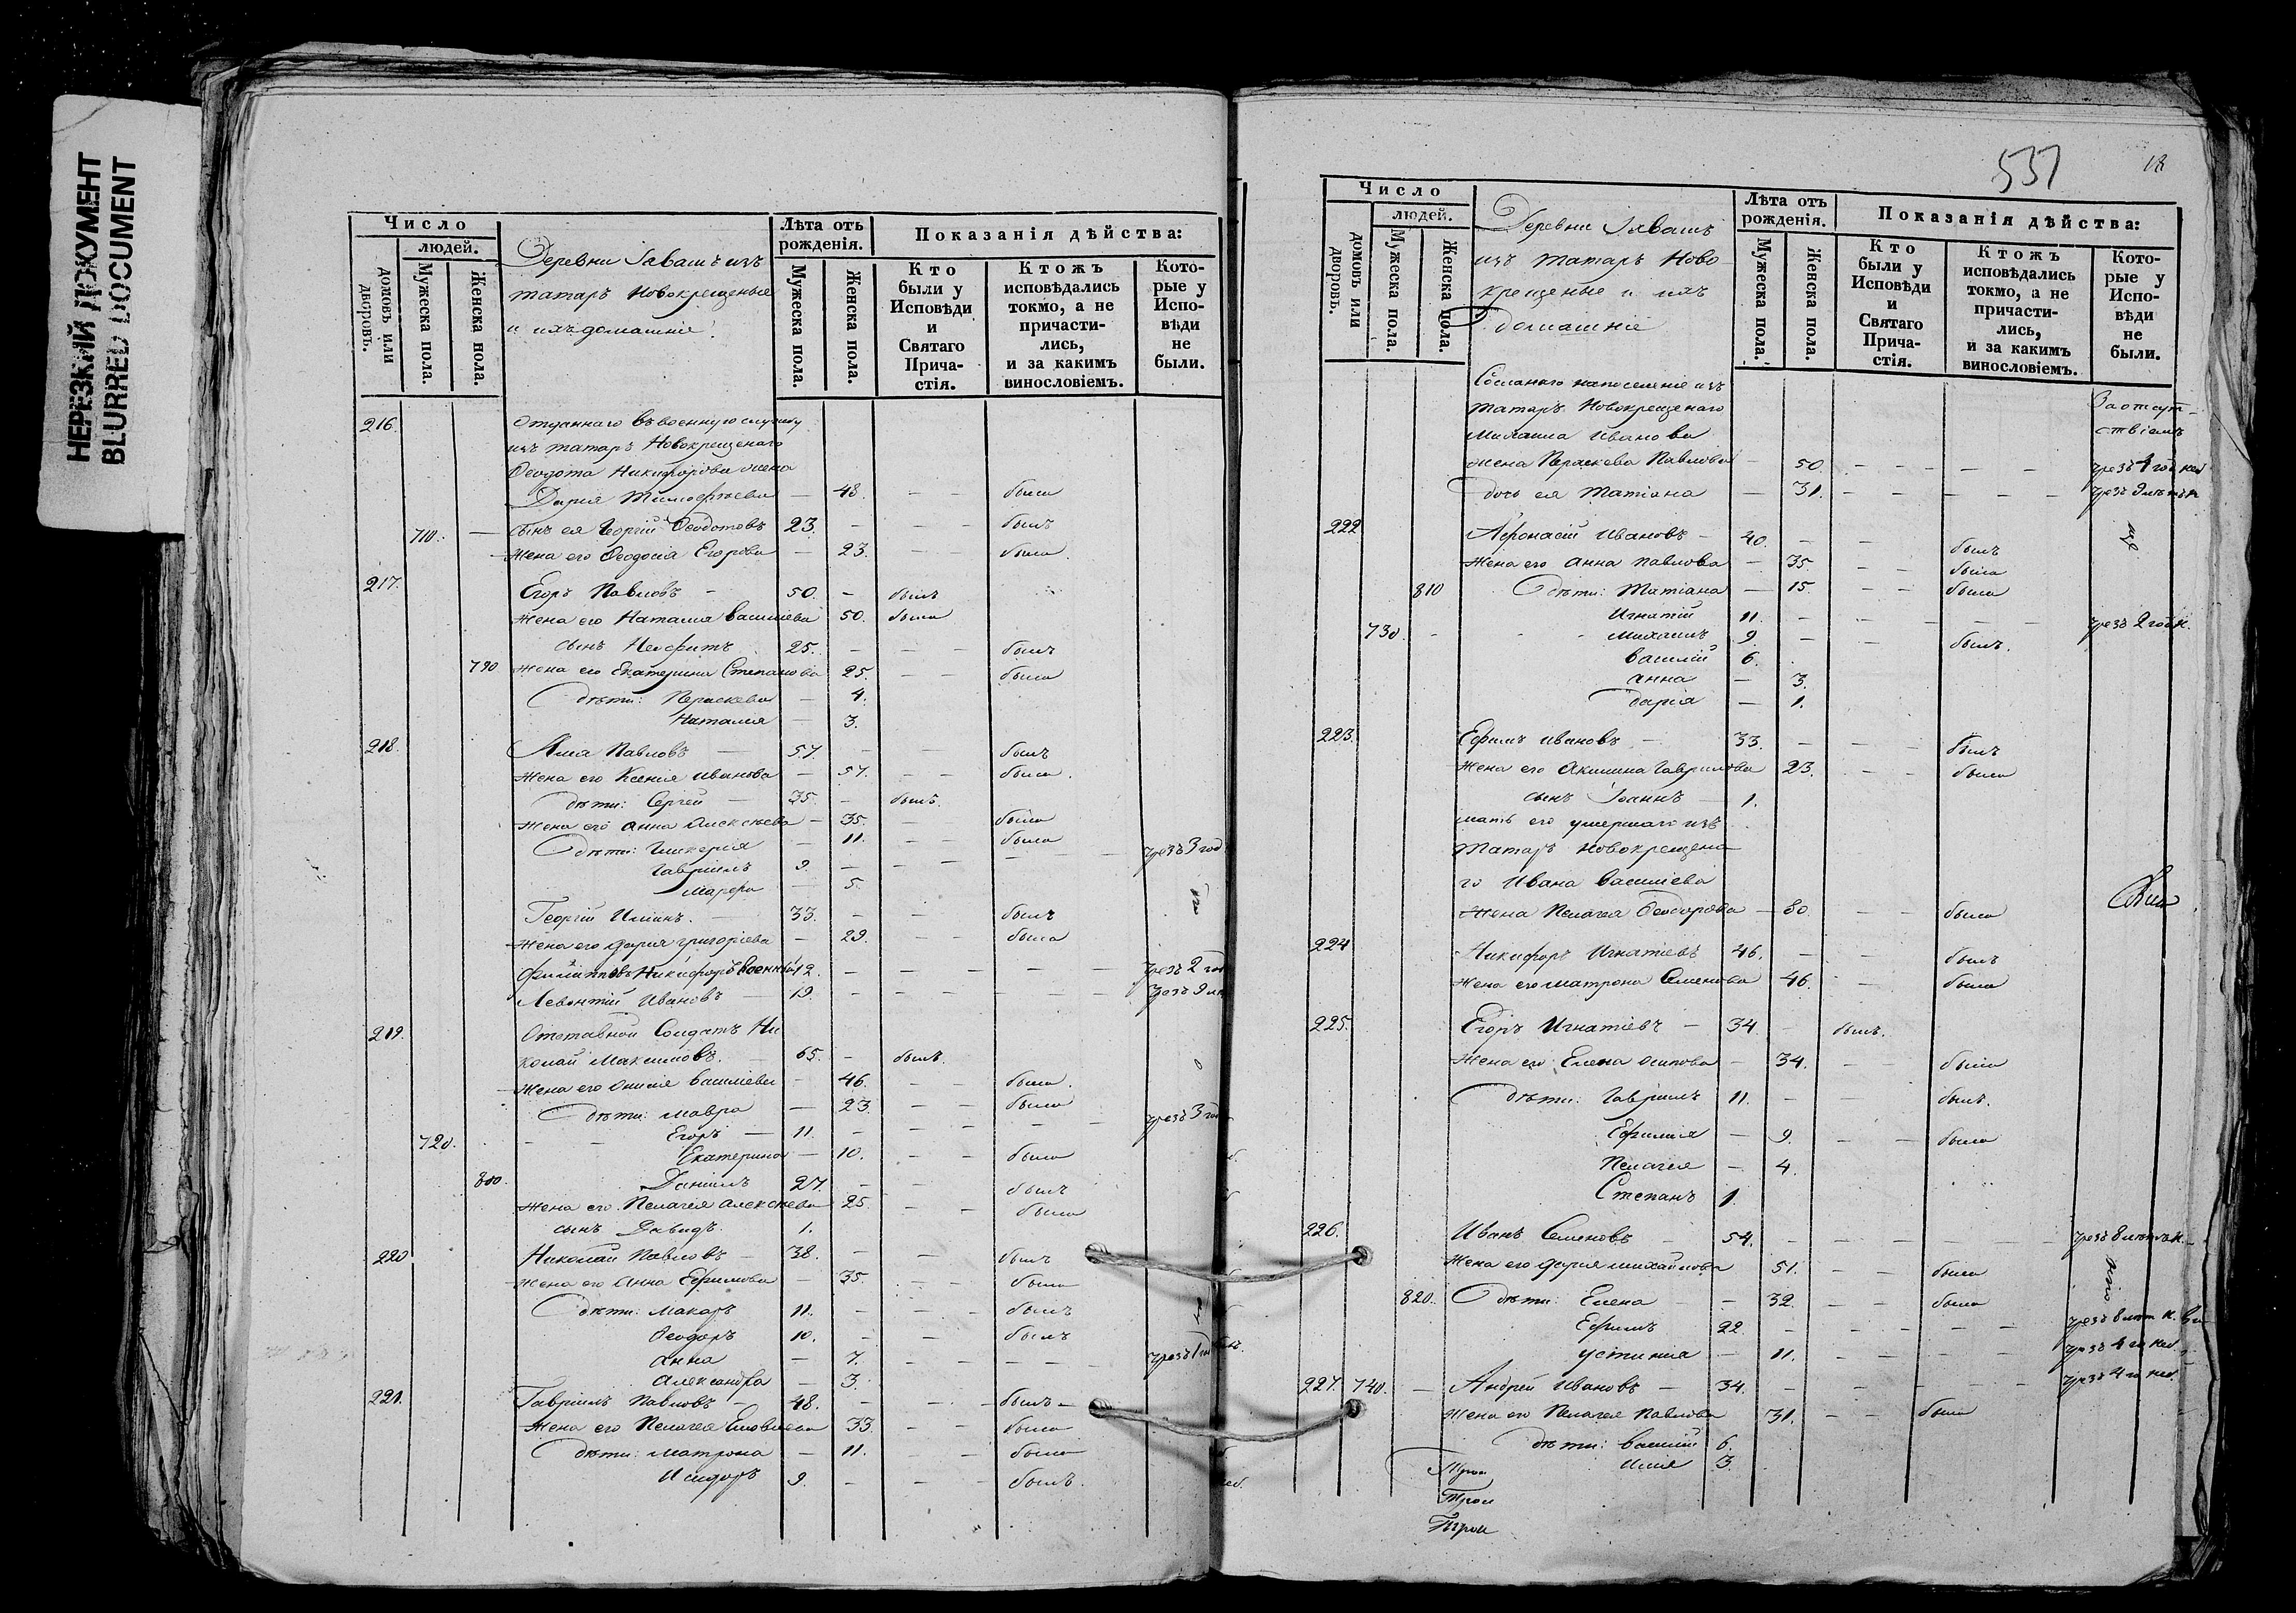 НЕРЕЗКИЙ ДОКУМЕНТ
BLURRED DOCUMENT
Число
людей.
домовъ или дворовъ.
Мужеска пола.
Женска пола.
Деревни Іаваш изъ
татаръ Новокрещеные
и ихъ домашніе
Лѣта отъ рожденія.
Мужеска пола.
Женска пола.
Показанія дѣйства:
Кто были у Исповѣди и Святаго Причастія.
Ктожъ исповѣдались токмо, а не причастились, и за какимъ винословіемъ.
Которые у Исповѣди не были.
216. Отданнаго въ военную службу
изъ татаръ Новокрещенаго
Ѳеодота Никифорова жена
Дарія Тимофѣева — 48. была
710. — сынъ ея Георгій Ѳеодотовъ 23. былъ
Жена его Ѳеодосія Егорова — 23. была
217. Егоръ Павловъ 50. былъ
Жена его Наталія Василіева 50. была
сынъ Неофитъ 25. былъ
790 Жена его Екатерина Степанова 25. была
дѣти: Параскева — 4.
Наталия — 3.
218. Илія Павловъ 57. былъ
Жена его Ксенія Иванова — 57. была
дѣти: Сергей 35. былъ
Жена его Анна Алексѣева 35. была
дѣти: Гликерія 11. была
Гавріилъ 9. чрезъ 3 год
Марѳа — 5.
Георгій Илиинъ 33. былъ
Жена его Дарія Григоріева — 29. была
Филипповъ Никифоръ военный 12. чрезъ 2 год
Левонтій Ивановъ 19.
219. Отставной Солдатъ Ни
колай Максимовъ 65. былъ
Жена его Васиіліева 46. была
дѣти: Мавра — 23. была
720. Егоръ 11. чрезъ 3 год
Екатерина 10. была
800. Даніилъ 27. былъ
Жена его Пелагея Алексѣева 25. была
сынъ Давидъ 1.
220 Николай Павловъ 38. былъ
Жена его Анна Ефимова 35. была
дѣти: Макаръ 11. былъ
Ѳеодоръ 10. былъ
Анна — 7. чрезъ 1 год
Александра — 3.
221. Гавріилъ Павловъ 48. былъ
Жена его Пелагея 33. была
дѣти: Матрона — 11. была
Исидоръ 9. былъ.
537
18
Число
людей.
домовъ или дворовъ.
Мужеска пола.
Женска пола.
Деревни Іаваш
изъ татаръ Ново
крещеные и ихъ
домашніе
Лѣта отъ рожденія.
Мужеска пола.
Женска пола.
Показанія дѣйства:
Кто были у Исповѣди и Святаго Причастія.
Ктожъ исповѣдались токмо, а не причастились, и за какимъ винословіемъ.
Которые у Исповѣди не были.
Сосланаго на поселеніе изъ
татаръ Новокрещенаго
Михаила Иванова
жена Параскева Павлова — 50.
За отсут-
ствіемъ
дочь ея Татіана — 31.
222 Аѳонасій Ивановъ 40. былъ
Жена его Анна Павлова — 35. была
810 дѣти: Татіана — 15. была
Игнатій 11. чрезъ 2 год
730. Михаилъ 9. былъ.
Василій 6.
Анна — 3.
Дарія — 1.
223. Ефимъ Ивановъ 33. былъ
Жена его Акилина Гаврилова 23. была
сынъ Іоаннъ 1.
мать его умершаго изъ
татаръ Новокрещена
го Ивана Василіева
Жена Пелагея Ѳеодорова — 80. была
224 Никифоръ Игнатіевъ 46. былъ
Жена его Матрона Семенова 46. была
225. Егоръ Игнатіевъ 34 былъ.
Жена его Елена Осипова — 34. была
дѣти: Гавріилъ 11. былъ.
Ефимія — 9. была
Пелагея — 4.
Степанъ 1.
226. Иванъ Семеновъ 54.
Жена его Дарія Михайлова 51. была
820. дѣти: Елена — 32. была
Ефимъ 22.
Устинія — 11.
227. 740. Андрей Ивановъ 34.
Жена его Пелагея Павлова 31. была
дѣти: Василій 6.
Илія 3.